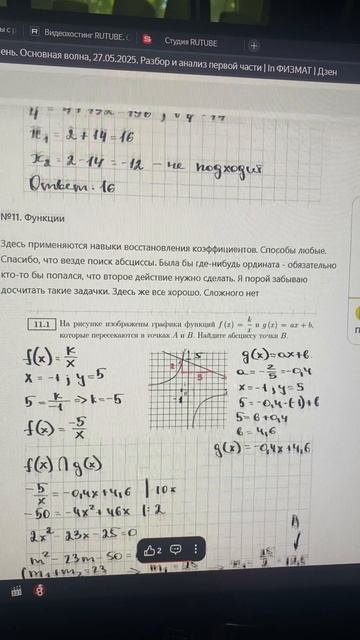 Видеохостинг RUTUBE.
Студия RUTUBE
ень. Основная волна, 27.05.2025. Разбор и анализ первой части | In ФИЗМАТ | Дзен
x₁ = 2 + 14 = 16
x₂ = 2 - 14 = -12 - не подходит
Ответ: 16
№11. Функции
Здесь применяются навыки восстановления коэффициентов. Способы любые.
Спасибо, что везде поиск абсциссы. Была бы где-нибудь ордината - обязательно
кто-то бы попался, что второе действие нужно сделать. Я порой забываю
досчитать такие задачки. Здесь же все хорошо. Сложного нет
11.1 На рисунке изображены графики функций f(x) = k/x и g(x) = ax + b,
которые пересекаются в точках A и B. Найдите абсциссу точки B.
f(x) = k/x
x = -1; y = 5
5 = k/-1 => k = -5
f(x) = -5/x
g(x) = ax + b
a = -2/5 = -0,4
x = -1; y = 5
5 = -0,4·(-1) + b
5 = b + 0,4
b = 4,6
g(x) = -0,4x + 4,6
f(x) ∩ g(x)
-5/x = -0,4x + 4,6 | 10x
-50 = -4x² + 46x | :2
2x² - 23x - 25 = 0
m² - 23m - 50 =
2